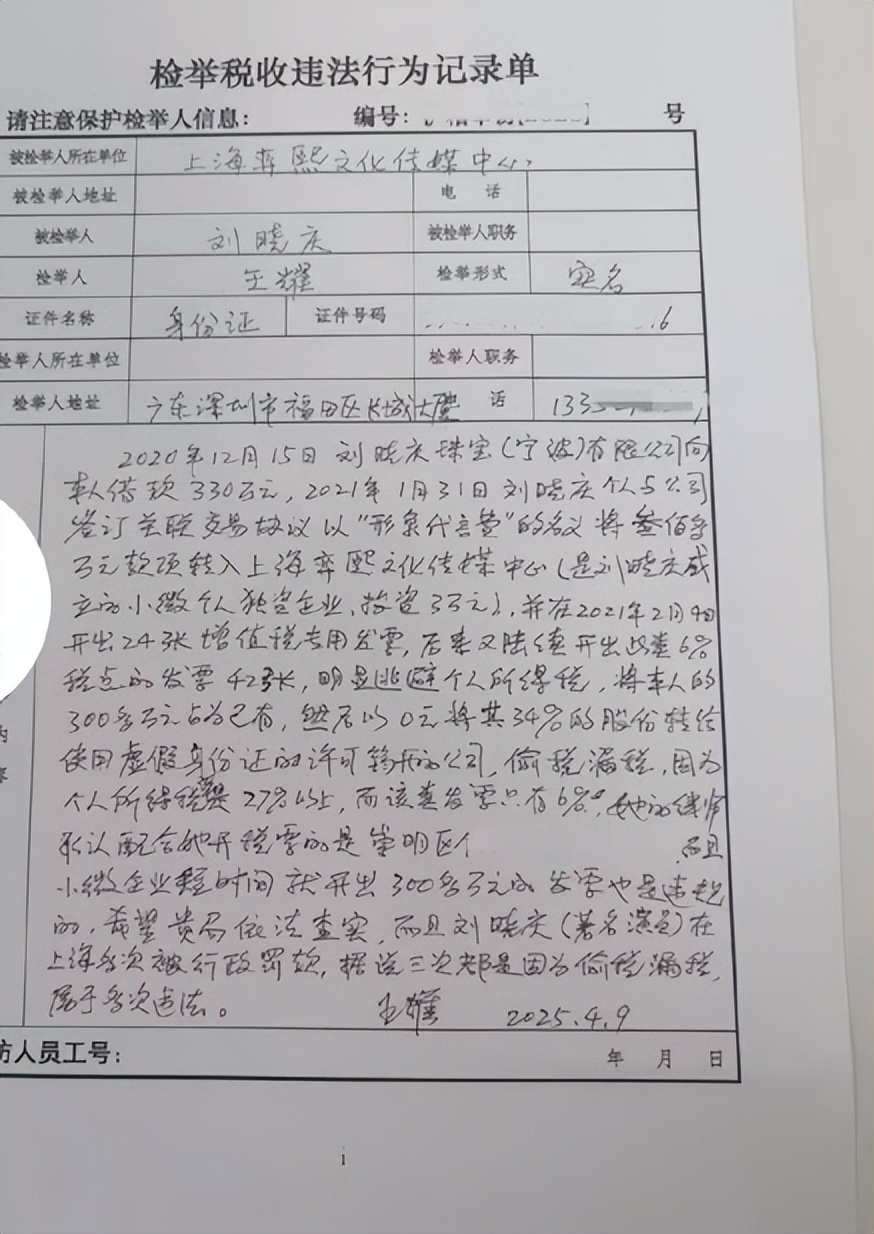 检举税收违法行为记录单
请注意保护检举人信息： 编号： 号
被检举人所在单位 上海弈熙文化传媒中心
被检举人地址 电 话
被检举人 刘晓庆 被检举人职务
检举人 王耀 检举形式 实名
证件名称 身份证 证件号码 6
检举人所在单位 检举人职务
检举人地址 广东深圳市福田区长城大 话 133
2020年12月15日刘晓庆珠宝(宁波)有限公司向
本人借款330万元，2021年1月31日刘晓庆个人与公司
签订关联交易协议以“形象代言费”的名义将叁佰多
万元款项转入上海弈熙文化传媒中心(是刘晓庆成
立的小微个人独资企业、投资3万元)，并在2021年2月4日
开出24张增值税专用发票，后来又陆续开出此类6%
税点的发票42张，明显逃避个人所得税，将本人的
300多万元占为己有，然后以0元将其34%的股份转给
使用虚假身份证的许可 的公司，偷税漏税，因为
个人所得税 是27%以上，而该类发票只有6%。她的律师
承认配合她开税票的是崇明区个 而且
小微企业短时间就开出300多万元的发票也是违规
的，希望贵局依法查实，而且刘晓庆(著名演员)在
上海多次被行政罚款，据说三次都是因为偷税漏税，
属于多次违法。 王耀 2025.4.9
内
容
访人员工号： 年 月 日
1